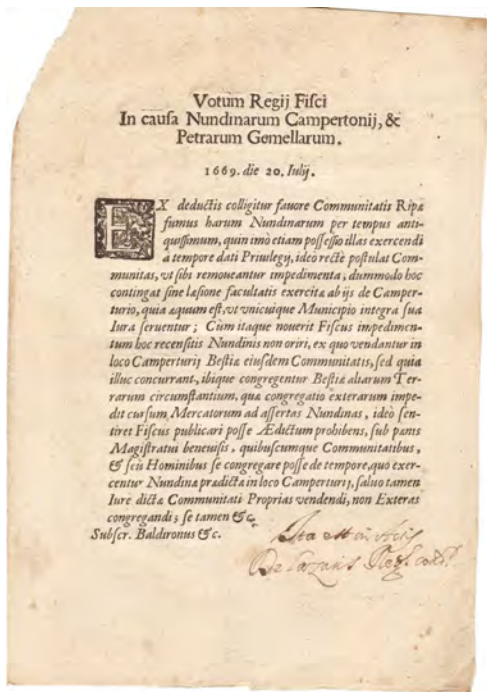 Votum Regij Fisci
In causa Nundinarum Campertonij, &
Petrarum Gemellarum.
1669. die 20. Iulij.
EX deductis colligitur favore Communitatis Ripæ
fumus harum Nundinarum per tempus anti-
quissimum, quin imò etiam possessio illas exercendi
à tempore dati Priuilegij, ideò rectè postulat Com-
munitas, vt sibi remoueantur impedimenta, dummodo hoc
contingat sine læsione facultatis exercitæ ab ijs de Camper-
turio, quia æquum est, vt vnicuique Municipio integra sua
Iura seruentur; Cùm itaque nouerit Fiscus impedimen-
tum hoc recensitis Nundinis non oriri, ex quo vendantur in
loco Camperturij Bestiæ eiusdem Communitatis, sed quia
illuc concurrant, ibique congregentur Bestiæ aliarum Ter-
rarum circumstantium, quæ congregatio exterarum impe-
dit cursum Mercatorum ad assertas Nundinas, ideò sen-
tiret Fiscus publicari posse Ædictum prohibens, sub pœnis
Magistratui beneuisis, quibuscumque Communitatibus,
& seù Hominibus se congregare posse de tempore, quo exer-
centur Nundinæ prædictæ in loco Camperturij, saluo tamen
Iure dictæ Communitati Proprias vendendi, non Exteras
congregandi; se tamen &c.
Subscr. Baldironus &c.